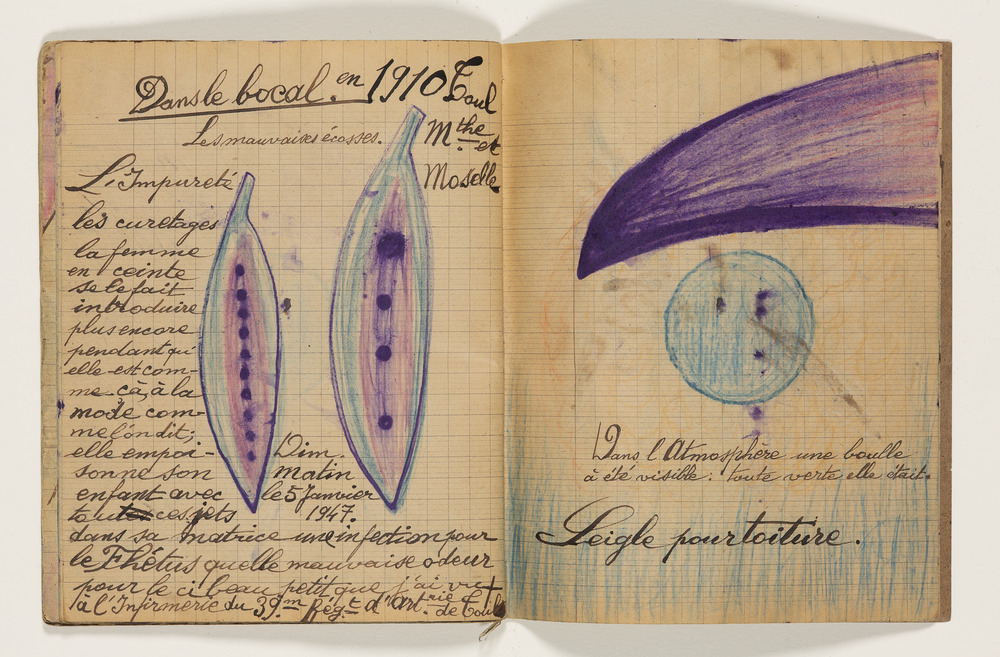 Dans le bocal. en 1910 Toul
Mthe et
Moselle
Les mauvaises écosses.
L'Impureté
les curetages
la femme
en ceinte
se le fait
introduire
plus encore
pendant qu'
elle est com-
me çà, à la
mode com-
me l'on dit;
elle empoi-
sonne son
enfant avec
toute ces jets
dans sa matrice une infection pour
le Fhétus quelle mauvaise odeur
pour le ci beau petit que j'ai vu
à l'Infirmerie du 39m Régt d'Artrie de Toul
Dim.
matin
le 5 Janvier
1947.
Dans l'Atmosphère une boulle
à été visible: toute verte elle était.
Leigle pour toiture.